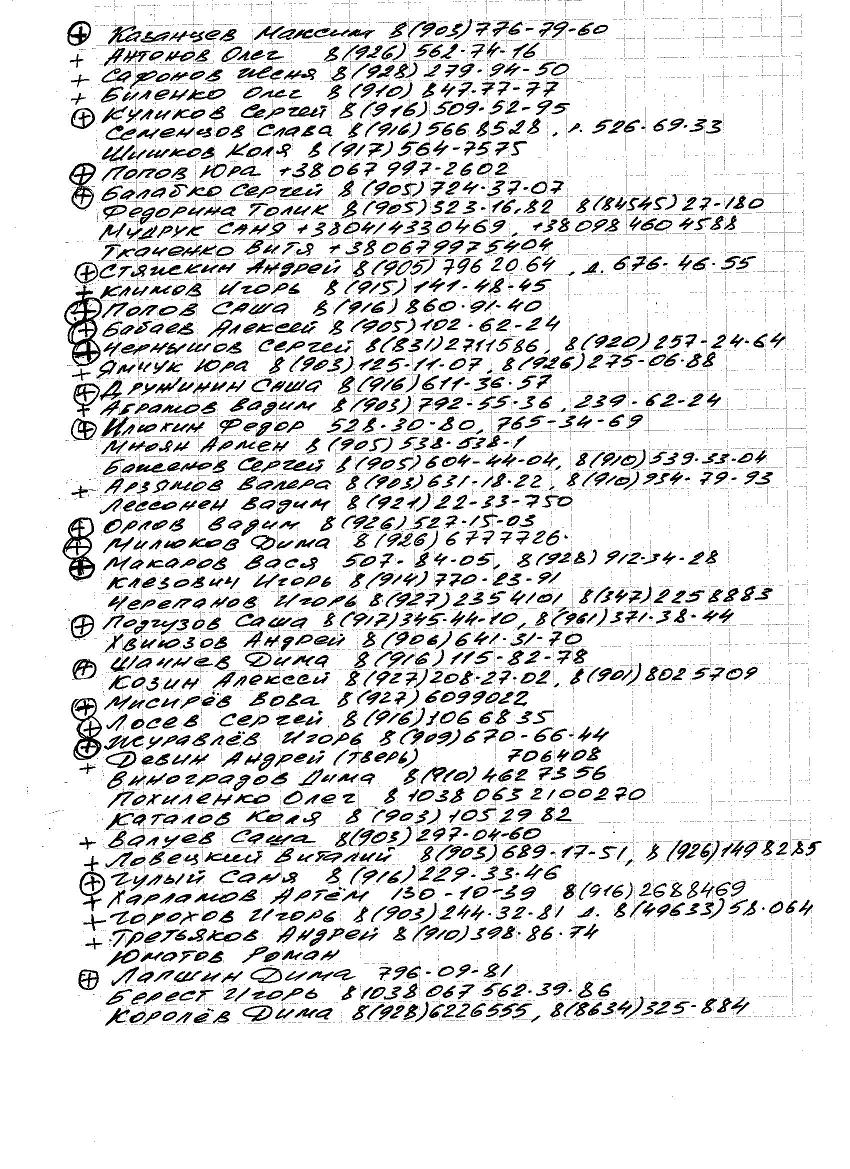 ⊕ Казанцев Максим 8(903)776-79-60
+ Антонов Олег 8(926)562-74-16
+ Сафонов Женя 8(928)279-94-50
+ Биленко Олег 8(910)847-77-77
⊕ Куликов Сергей 8(916)509-52-95
Семенцов Слава 8(916)5668528, р. 526-69-33
Шишков Коля 8(917)564-7575
⊕ Попов Юра +38067 997-2602
⊕ Балабко Сергей 8(905)724-37-07
Федорина Толик 8(905)323-16,82 8(84545)27-180
Мудрук Саня +380414330469, +38098 460 4588
Ткаченко Витя +380679975404
⊕ Стяжкин Андрей 8(905)796 20 64, д. 676-46-55
+ Климов Игорь 8(915)141-48-45
⊕ Попов Саша 8(916)860-91-40
⊕ Бабаев Алексей 8(905)102-62-24
⊕ Чернышов Сергей 8(831)2711586, 8(920)257-24-64
+ Ямчук Юра 8(903)125-11-07, 8(926)275-06-88
⊕ Дружинин Саша 8(916)611-36-57
+ Абрамов Вадим 8(903)792-55-36, 239-62-24
⊕ Илюхин Федор 528-30-80, 765-34-69
Мноян Армен 8(905)538-538-1
Баженов Сергей 8(905)604-44-04, 8(910)539-33-04
+ Арзямов Валера 8(903)631-18-22, 8(910)934-79-93
Лессонен Вадим 8(921)22-33-750
⊕ Орлов Вадим 8(926)527-15-03
⊕ Милюков Дима 8(926)6777726.
⊕ Макаров Вася 507-84-05, 8(928)912-34-28
Клезович Игорь 8(914)770-23-91
Черепанов Игорь 8(927)2354101, 8(347)2258883
⊕ Подгузов Саша 8(917)345-44-10, 8(961)371-38-44
Хвиюзов Андрей 8(906)641-31-70
⊕ Шаинев Дима 8(916)115-82-78
Козин Алексей 8(927)208-27-02, 8(901)802 5709
⊕ Мисирёв Вова 8(927)6099022
⊕ Лосев Сергей 8(916)106 68 35
⊕ Журавлёв Игорь 8(909)670-66-44
+ Девин Андрей (Тверь) 706408
Виноградов Дима 8(910)462 73 56
Похиленко Олег 8 1038 063 2100270
Каталов Коля 8 (903)105 29 82
+ Валуев Саша 8(903)297-04-60
+ Ловецкий Виталий 8(903)689-17-51, 8(926)1498285
⊕ Гулый Саня 8(916)229-33-46
+ Харламов Артём 130-10-39 8(916)2688469
+ Горохов Игорь 8(903)244-32-81 д. 8(49633)58-064
+ Третьяков Андрей 8(910)398-86-74
Юматов Роман
⊕ Лапшин Дима 796-09-81
Берест Игорь 8 1038 067 562-39-86
Королёв Дима 8(928)6226555, 8(8634)325-884